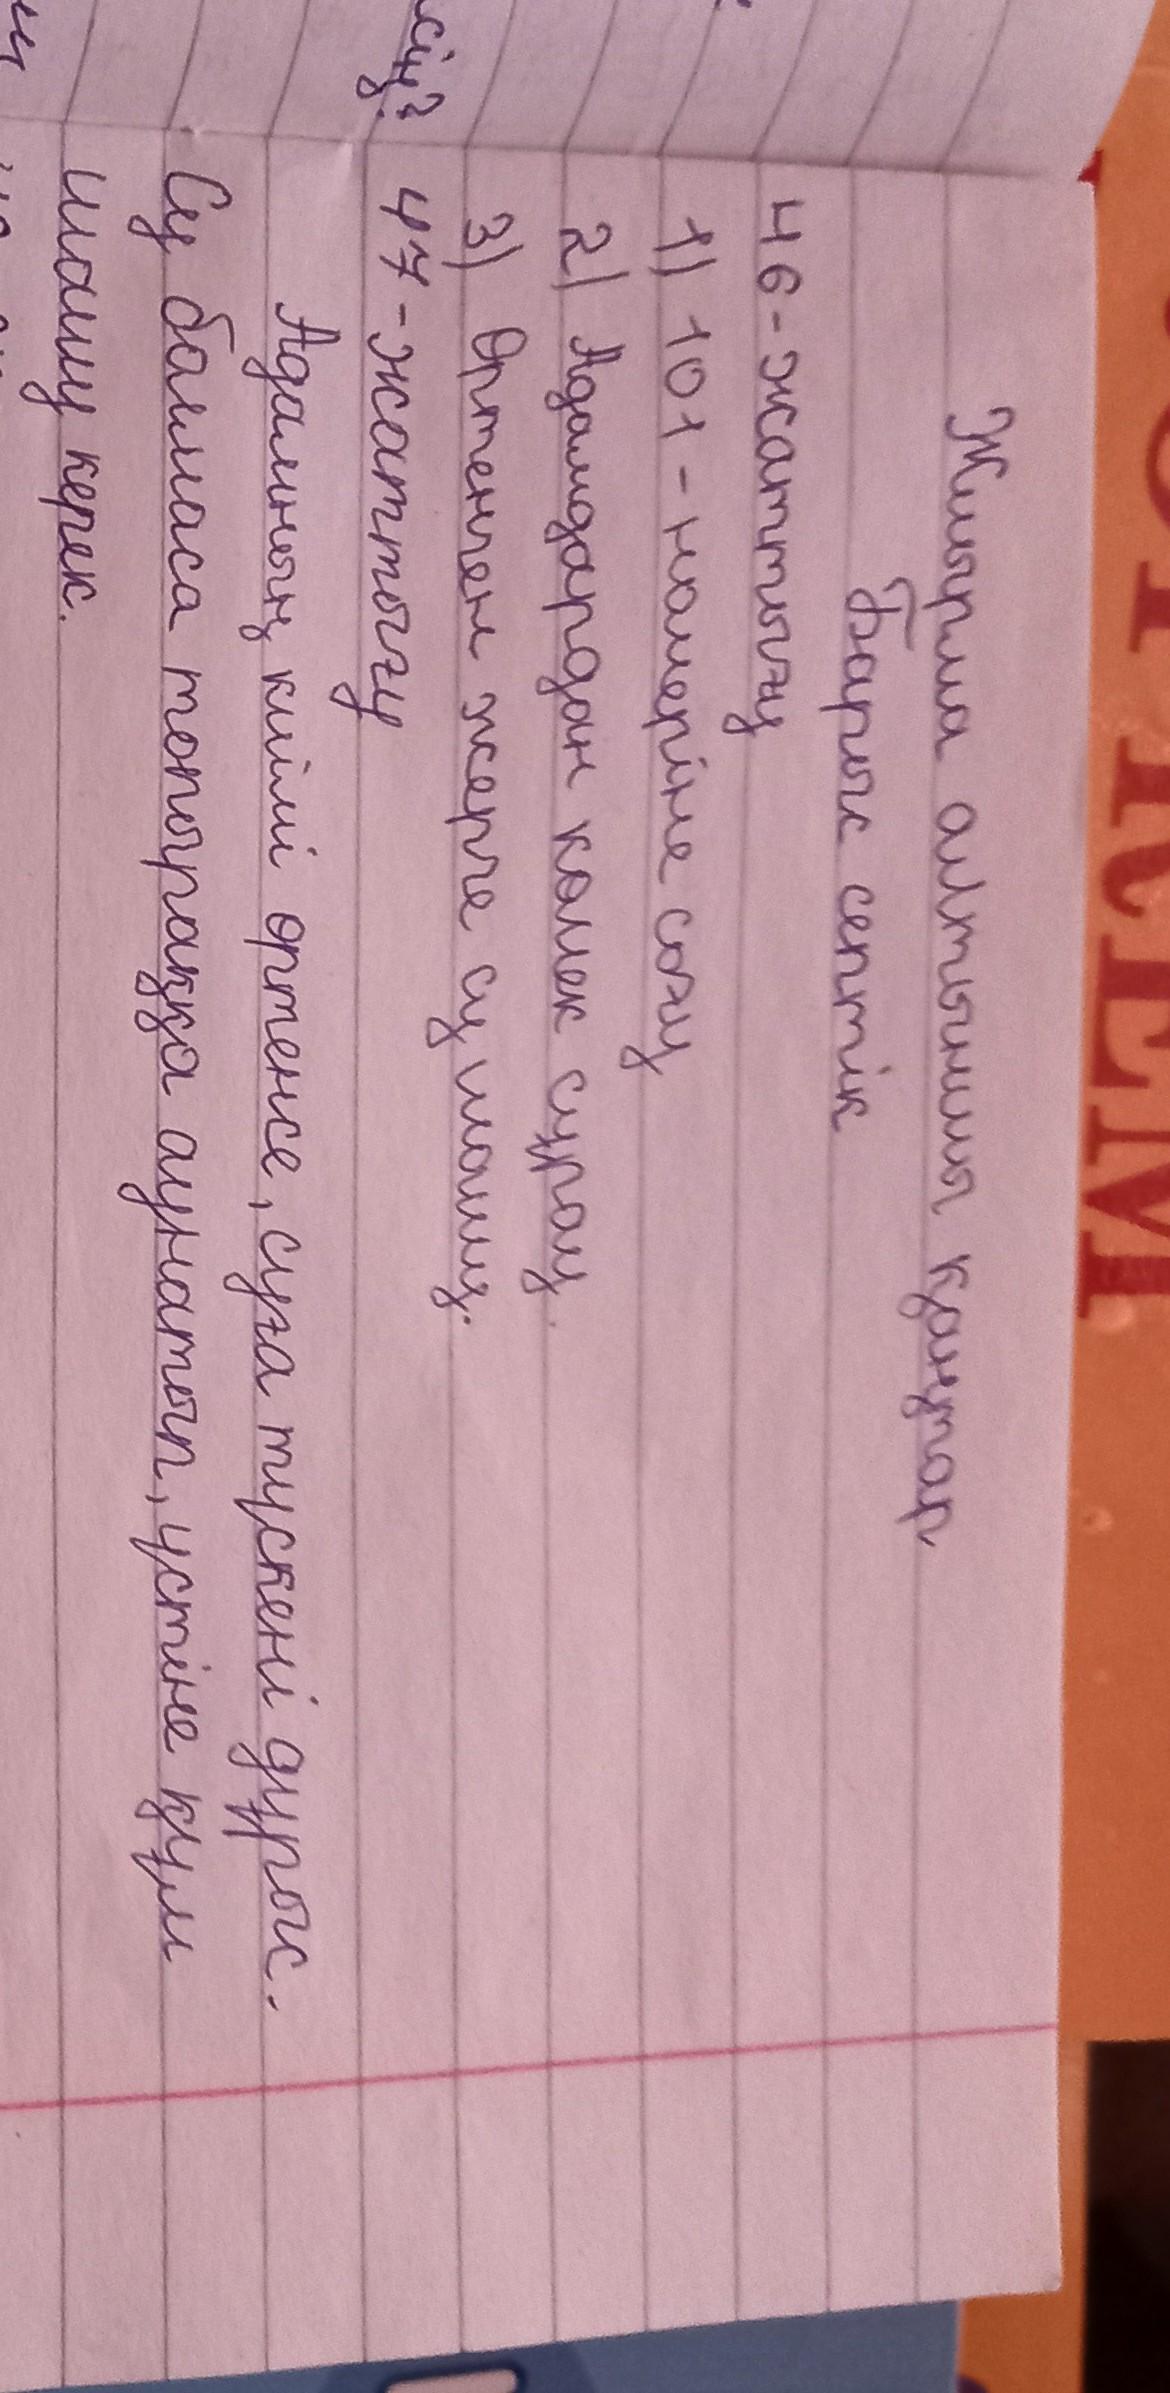 Жиырма алтыншы қаңтар
Барыс септік
46-жаттығу
1) 101-номеріне соғу
2) Адамдардан көмек сұрау.
3) Өртенген жерге су шашу.
47-жаттығу
Адамның киімі өртенсе, суға түскені дұрыс.
Су болмаса топыраққа аунатып, үстіне құм
шашу керек.
сің?